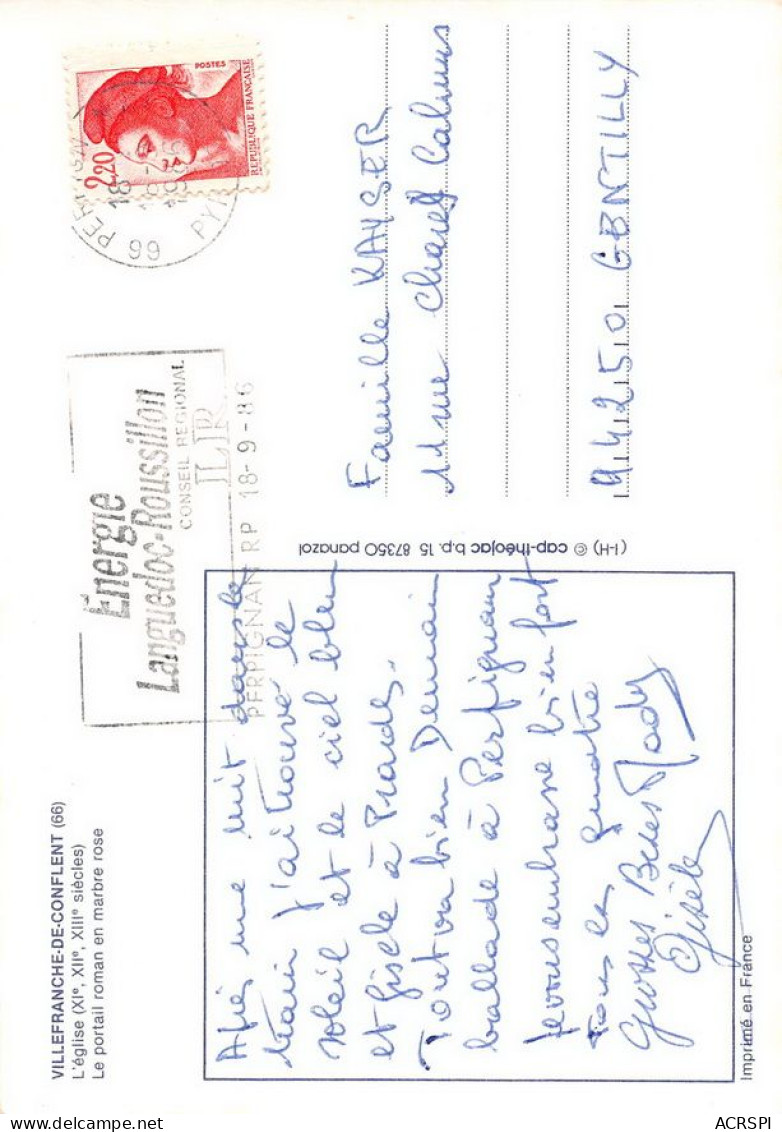 VILLEFRANCHE-DE-CONFLENT (66)
L'église (XIe, XIIe, XIIIe siècles)
Le portail roman en marbre rose
Après une nuit dans le
train j'ai trouvé le
soleil et le ciel bleu
et Gisèle à Prades.
Tout va bien Demain
ballade à Perpignan
Je vous embrasse bien fort
tous les quatre
Grosses Bises Mady
Gisèle
Imprimé en France
Énergie
Languedoc-Roussillon
CONSEIL REGIONAL
PERPIGNAN RP 18-9-86
(I-H) © cap-théojac b.p. 15 87350 panazol
POSTES
REPUBLIQUE FRANÇAISE
2,20
18
66
Famille KAYSER
rue Charles Calmus
94250 GENTILLY
ACRSPI